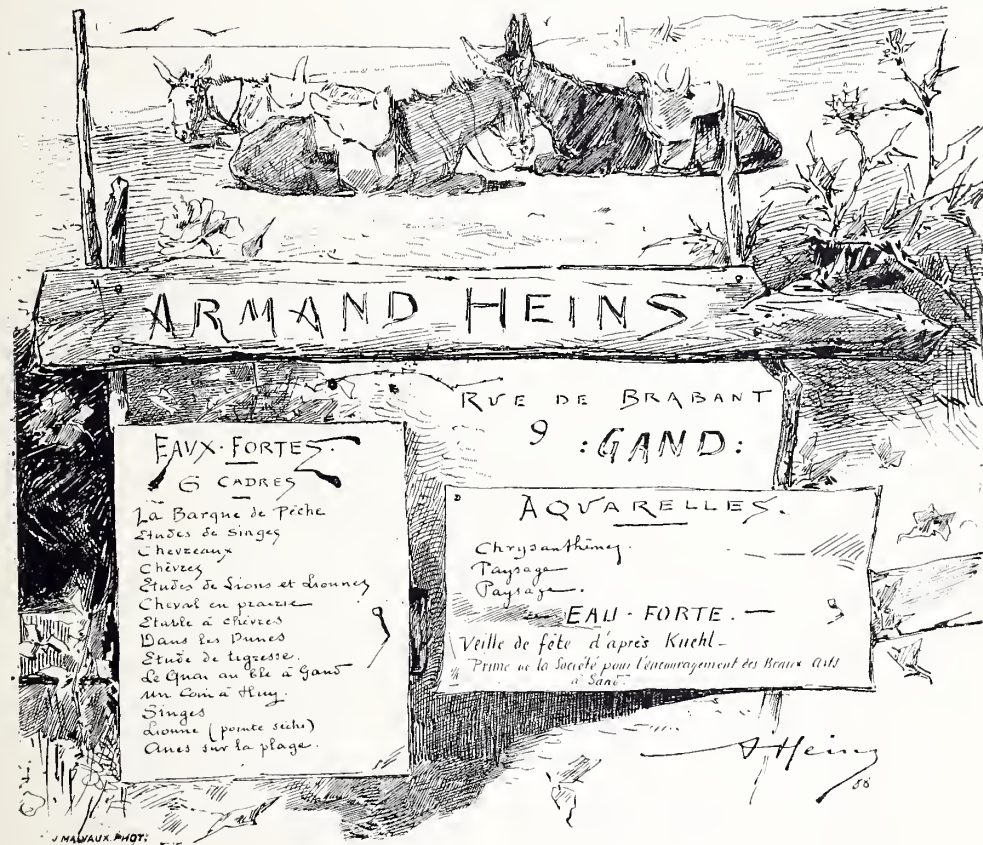 ARMAND HEINS
RVE DE BRABANT
9 :GAND:
EAUX·FORTES.
6 CADRES
La Barque de Pêche
Etudes de Singes
Chevreaux
Chèvres
Etudes de Lions et Lionnes
Cheval en prairie
Etable à chèvres
Dans les Dunes
Etude de tigresse.
Le Quai au blé à Gand
un Coin à Huy.
Singes
Lionne (pointe sèche)
Anes sur la plage.
AQVARELLES.
Chrysanthèmes.
Paysage
Paysage.
EAU·FORTE.—
Veille de fête d'après Kuehl—
Prime de la Société pour l'encouragement des Beaux Arts
à Gand.
AHeins
J MALVAUX. PHOT: